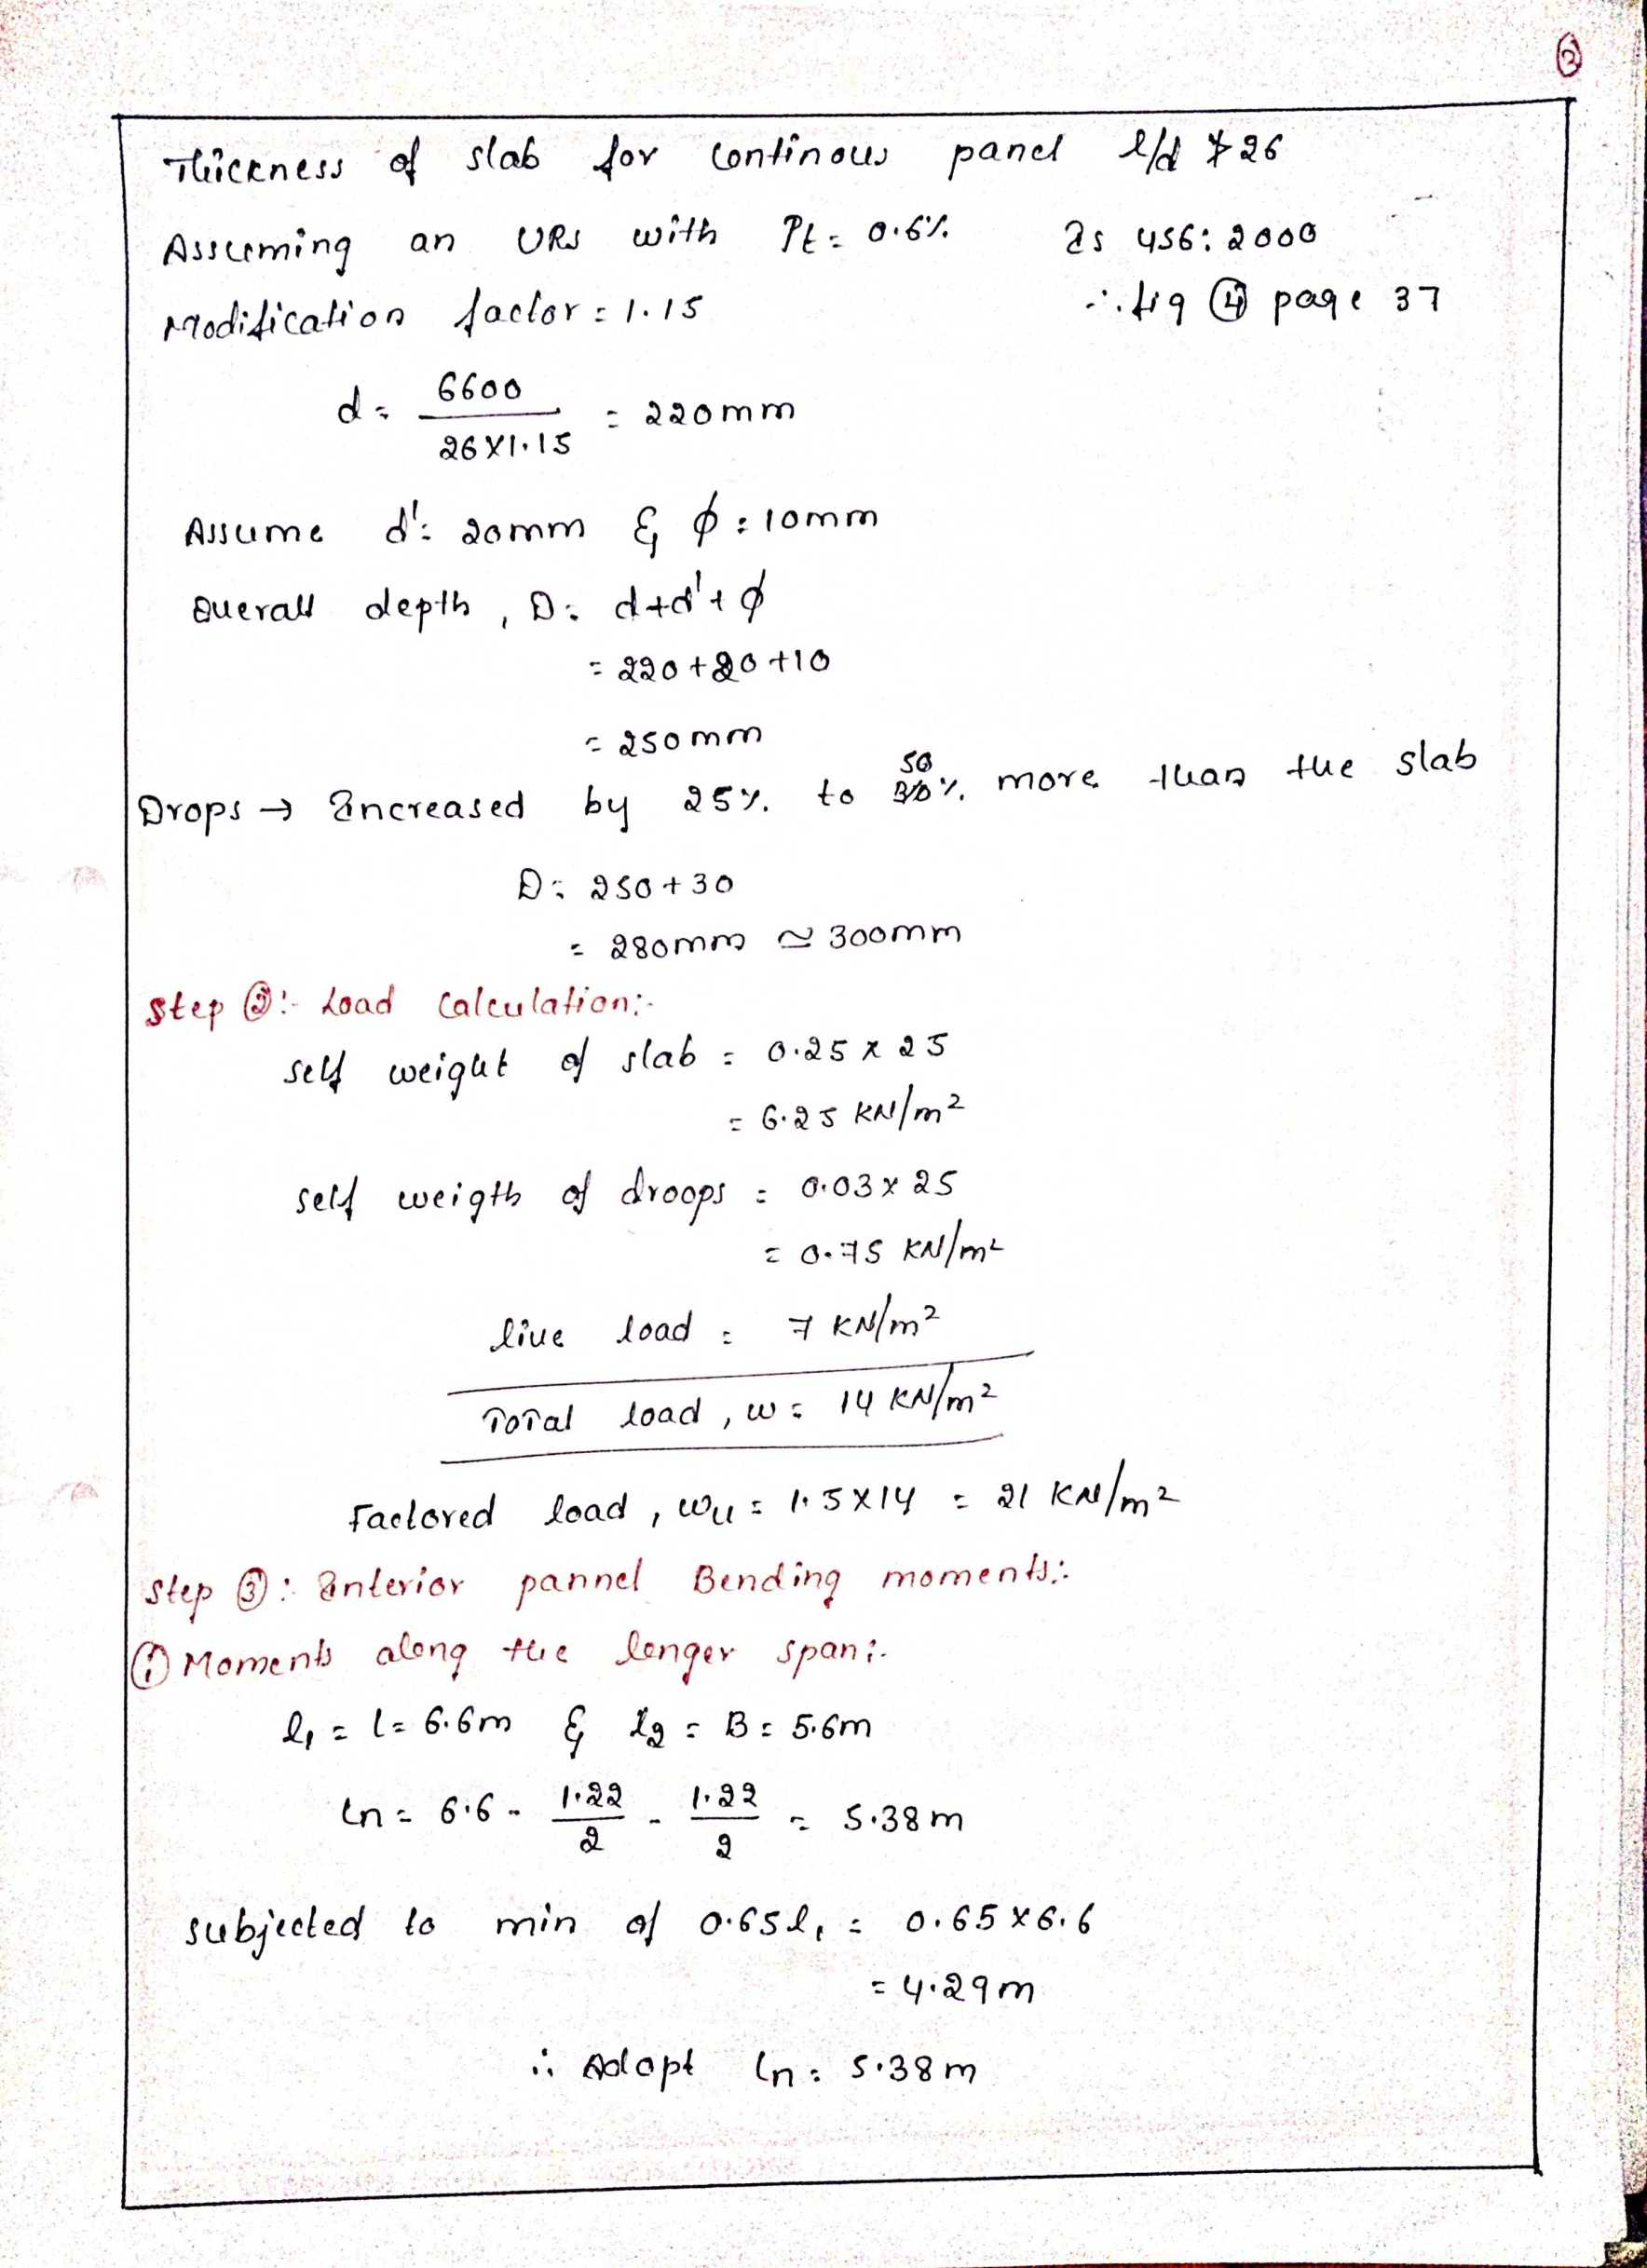 ②
Thickness of slab for continous panel l/d ≯ 26
Assuming an URS with Pt = 0.6% Is 456: 2000
Modification factor = 1.15 ∴ fig ④ page 37
d = 6600 / 26×1.15 = 220mm
Assume d' = 20mm & ϕ = 10mm
Overall depth, D = d+d'+ϕ
= 220+20+10
= 250mm
Drops → Increased by 25% to 50% more than the slab
D = 250+30
= 280mm ≃ 300mm
Step ②:- Load Calculation:-
self weight of slab = 0.25 × 25
= 6.25 KN/m²
self weigth of droops = 0.03 × 25
= 0.75 KN/m²
live load = 7 KN/m²
Total load, w = 14 KN/m²
Factored load, wu = 1.5×14 = 21 KN/m²
Step ③: Interior pannel Bending moments:-
① Moments along the longer span:-
l₁ = l = 6.6m & l₂ = B = 5.6m
ln = 6.6 - 1.22/2 - 1.22/2 = 5.38m
subjected to min of 0.65l₁ = 0.65×6.6
= 4.29m
∴ Adopt ln = 5.38m